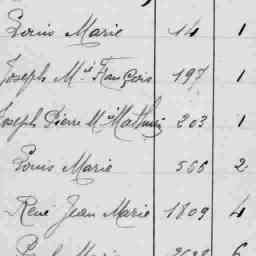 Louis Marie 14 1
Joseph M.ie François 197 1
Joseph Pierre M.ie Mathurin 203 1
Louis Marie 566 2
René Jean Marie 1809 4
Marie 6